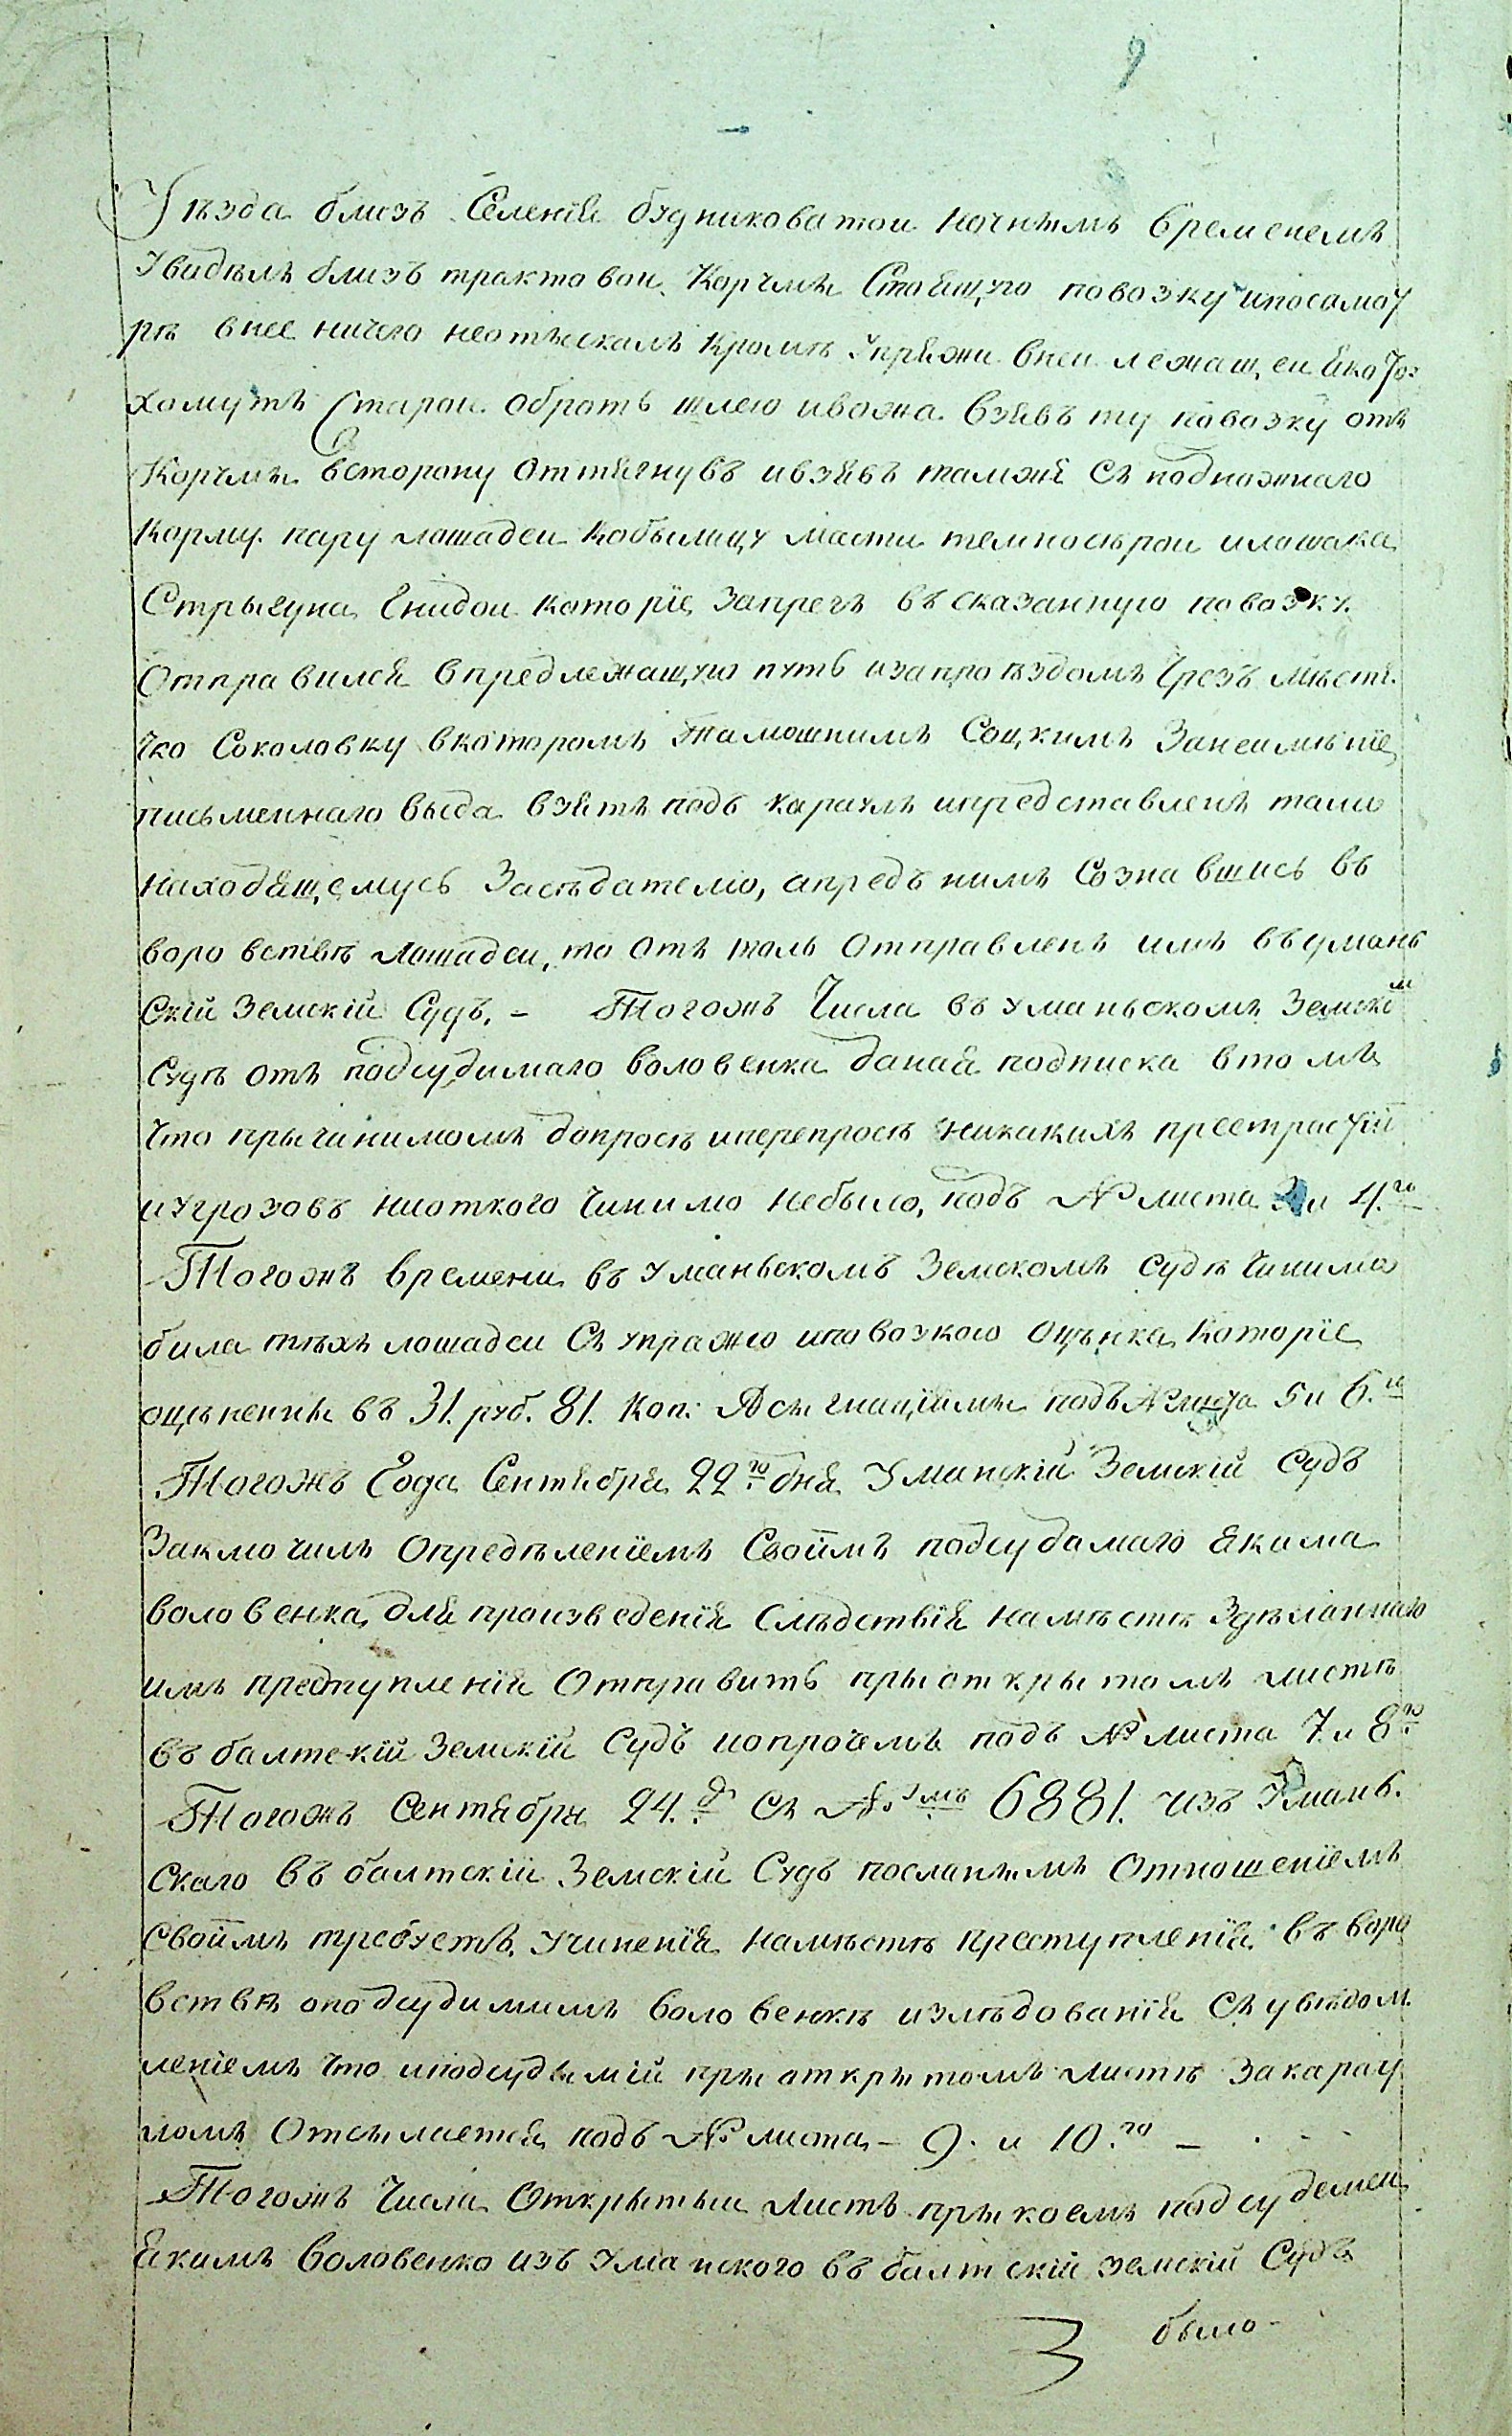 9
Уѣзда близъ Селенія будниковатои ночнымъ временемъ
Увидѣлъ близъ трактовои Корчмы Стоящую повозку ипосамоу
рѣ внее ничего неотыскалъ Кромѣ Упряжи внеи лежащеи
хомутъ Старои обротъ шлею ивожка взявъ ту повозку отъ
Корчмы всторону Оттягнувъ ивзявъ тамже Съ подножнаго
Корму пару лошадеи Кобылицу масти темносѣрои илошака
Стрыгуна Гнидои которіе запрегъ въ сказанную повозку.
Отправился впредлежащую путь изапроѣздомъ Чрезъ мѣстѣ
чко Соколовку вкоторомъ Тамошнимъ Соцкимъ Занеимѣніе
письменнаго выда взятъ подъ караулъ ипредставленъ тамо
находящемусь Засѣдателю, апредъ нимъ Сознавшись въ
воровствѣ Лошадеи, то Отъ толь Отправленъ имъ въ умань
Скій Земскій Судъ. - Тогожъ Числа въ Уманьскомъ Земско͏м
Судѣ отъ подсудимаго воловенка даная подписка втомъ
что прычинимомъ допросѣ иперепросѣ никакихъ престрастій
иугрозовъ ниоткого Чинимо небыло, подъ № листа 3 и 4.го
Тогожъ времени въ Уманьскомъ Земскомъ Судѣ Чинима
била тѣхъ лошадеи Съ упражю иповозкою Оцѣнка Которіе
оцѣненны въ 31. руб. 81. Коп: Асыгнаціямы подъ № листа 5 и 6.го
Тогожъ Года Сентября 22.го дня Уманскій Земскій Судъ
Заключилъ Опредѣленіемъ Своимъ подсудамаго Якима
воловенка для произведенія Слѣдствія намѣстѣ Здѣланнаго
имъ преступленія Отправить прыоткрытомъ листѣ
въ балтскій Земскій Судъ ипрочемъ подъ № листа 7. и 8.го
Тогожъ Сентября 24. д. Съ №.омъ 6881. изъ Умань.
Скаго въ балтскій Земскій Судъ посланымъ Отношеніемъ
Своимъ требуетъ Учиненія намѣстѣ преступленія въ воро
вствѣ оподсудимимъ воловенкѣ излѣдованія Съ увѣдом
леніемъ что иподсудымій пры открытомъ листѣ Закарау
ломъ Отсылается подъ № листа - 9. и 10.го -
Тогожъ Числа Открытыи Листъ прыкоемъ подсудемеи
Якимъ воловенко изъ Уманского въ балтскій земскій Судъ
3 было-